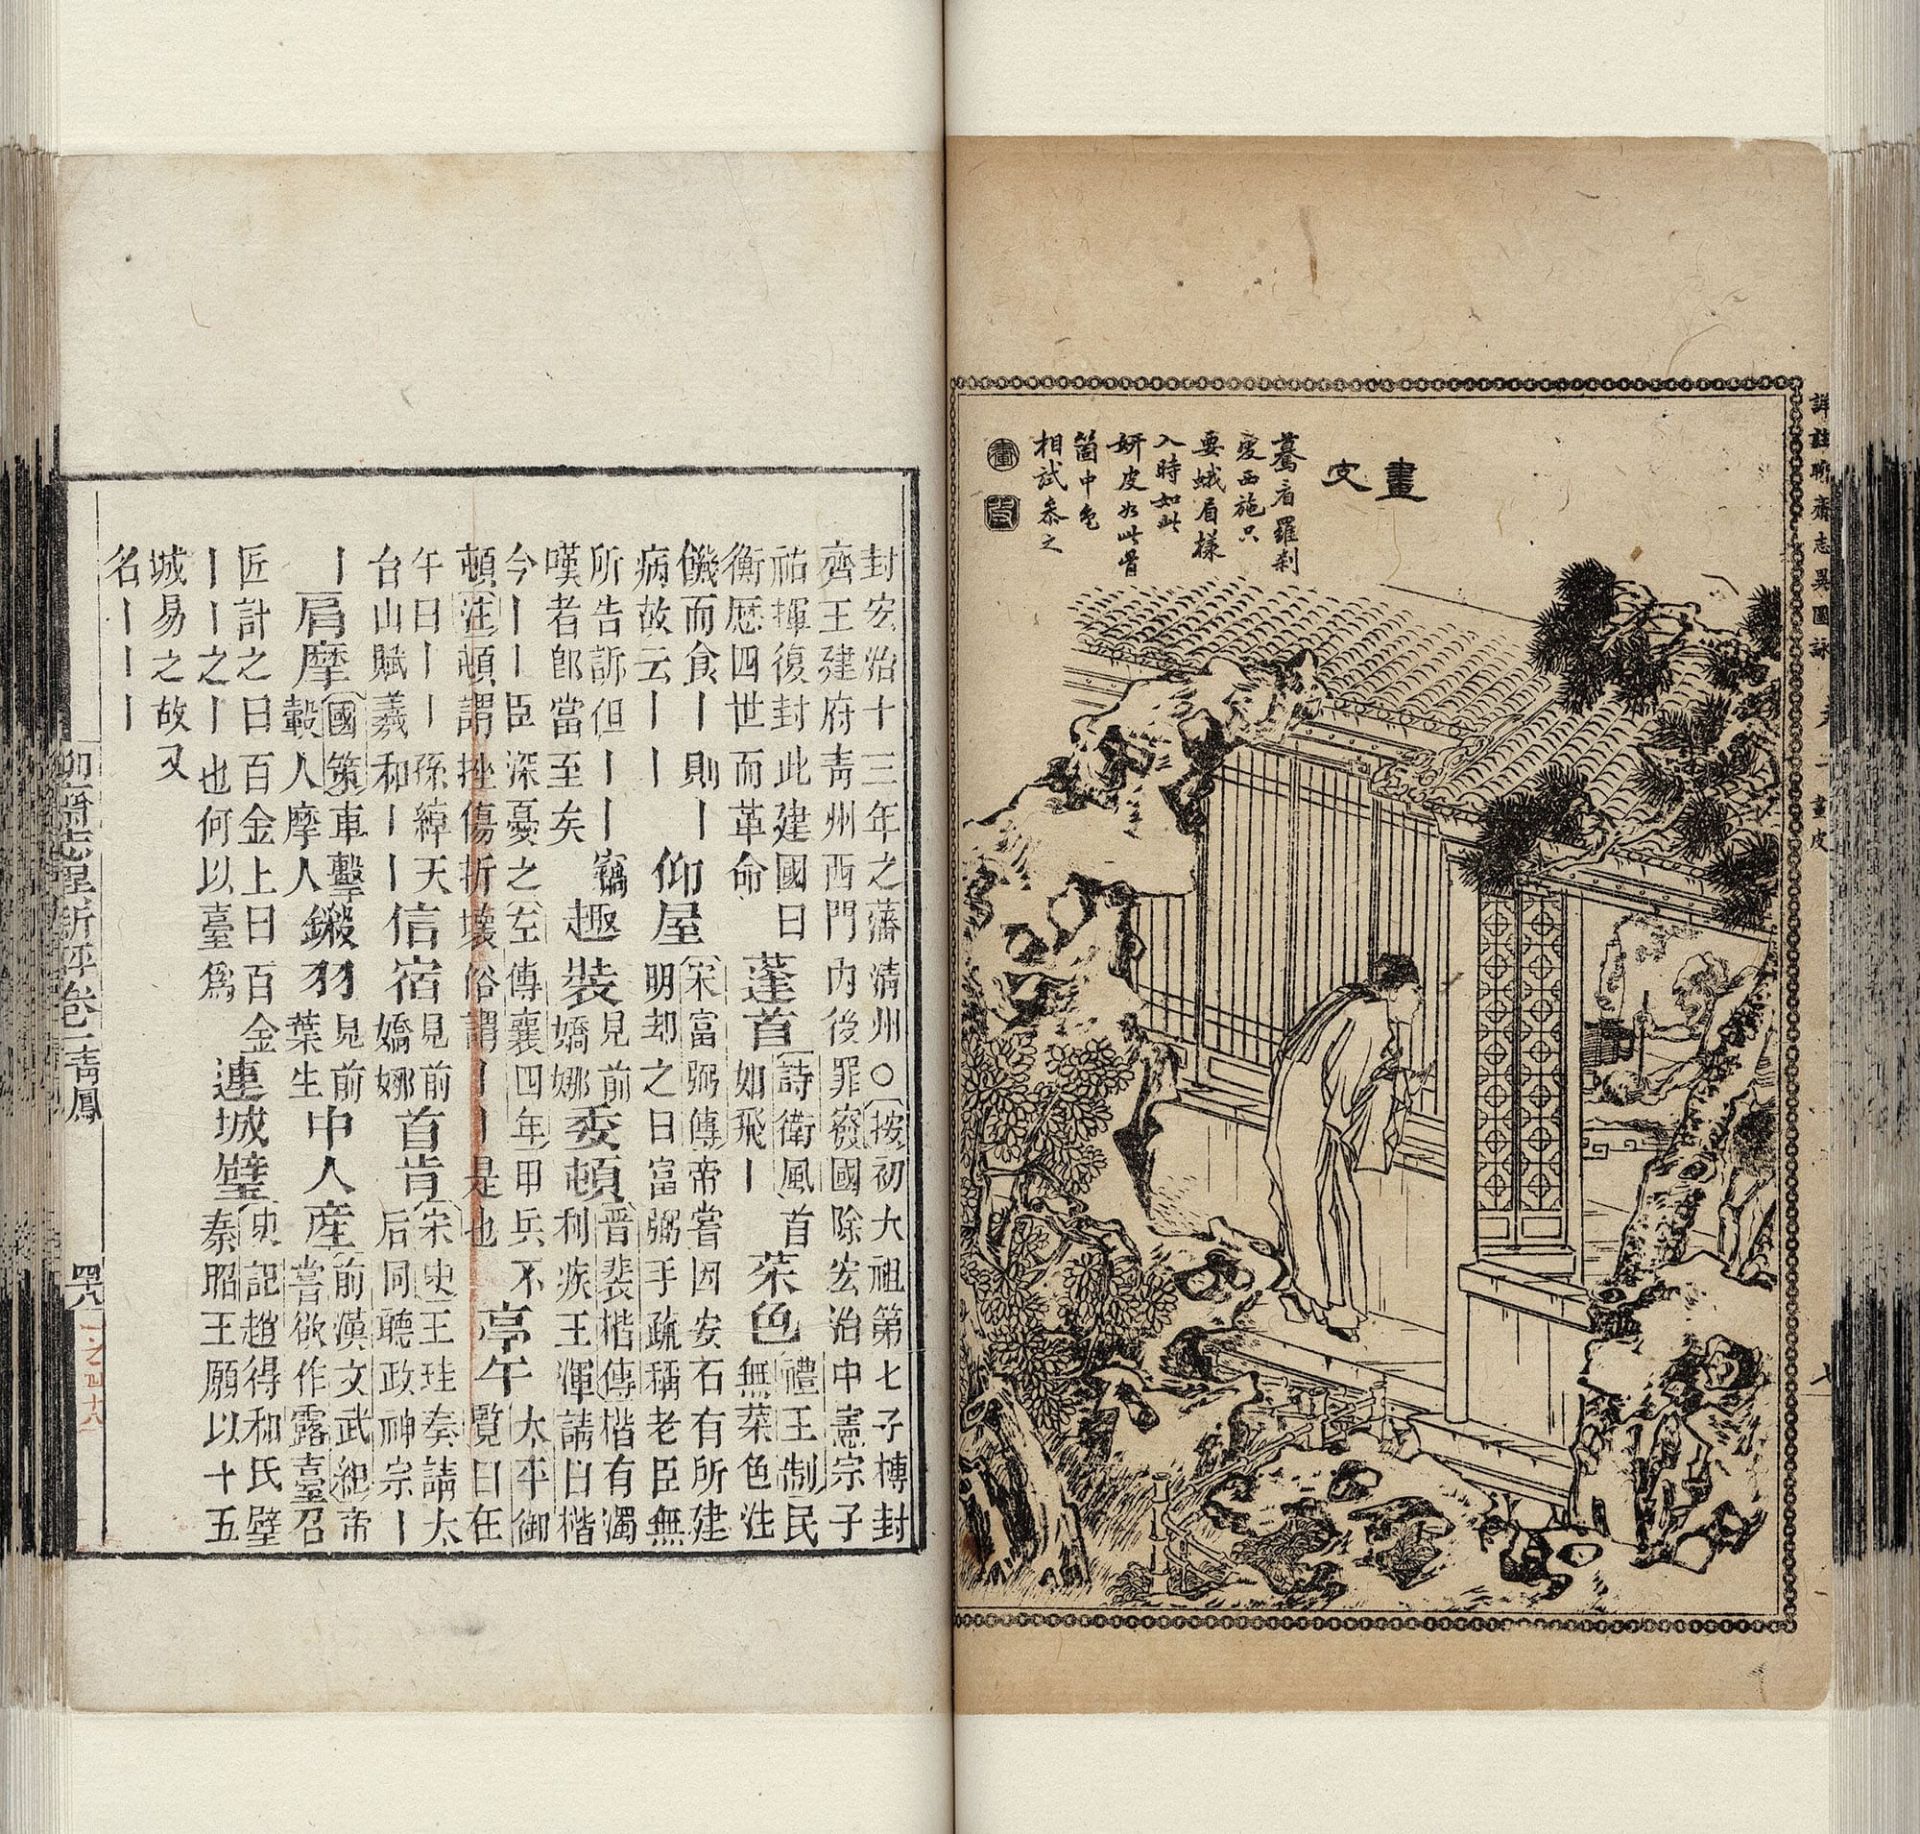 詳註聊齋志異圖詠 卷一 畫皮 七
畫皮
驀看羅剎
變西施只
要蛾眉樣
入時如此
妍皮如此骨
箇中色
相試參之
封宏治十三年之藩清州○按初大祖第七子榑封
齊王建府青州西門內後罪廢國除宏治中憲宗子
祐揮復封此建國曰衡歷四世而革命 蓬首 詩衛風首如飛｜ 菜色 禮王制民無菜色注
饑而食｜則｜病故云｜｜ 仰屋 宋富弼傳帝嘗因安石有所建明却之曰富弼手疏稱老臣無
所告訴但｜｜竊嘆者即當至矣 趣裝 見前嬌娜 委頓 晉裴楷傳楷有濁利疾王渾請曰楷
今｜｜臣深憂之左傳襄四年甲兵不頓注頓謂挫傷折壞俗謂｜｜是也 亭午 太平御覽日在
午曰｜｜孫綽天台山賦羲和｜｜ 信宿 見前嬌娜 首肯 宋史王珪奏請太后同聽政神宗｜
｜ 肩摩 國策車擊轂人摩人 鎩羽 見前葉生 中人產 前漢文武紀帝嘗欲作露臺召
匠計之曰百金上曰百金｜｜之｜也何以臺為 連城璧 史記趙得和氏璧秦昭王願以十五
城易之故又名｜｜｜
聊齋志異新評卷一青鳳 四八
一之四十八